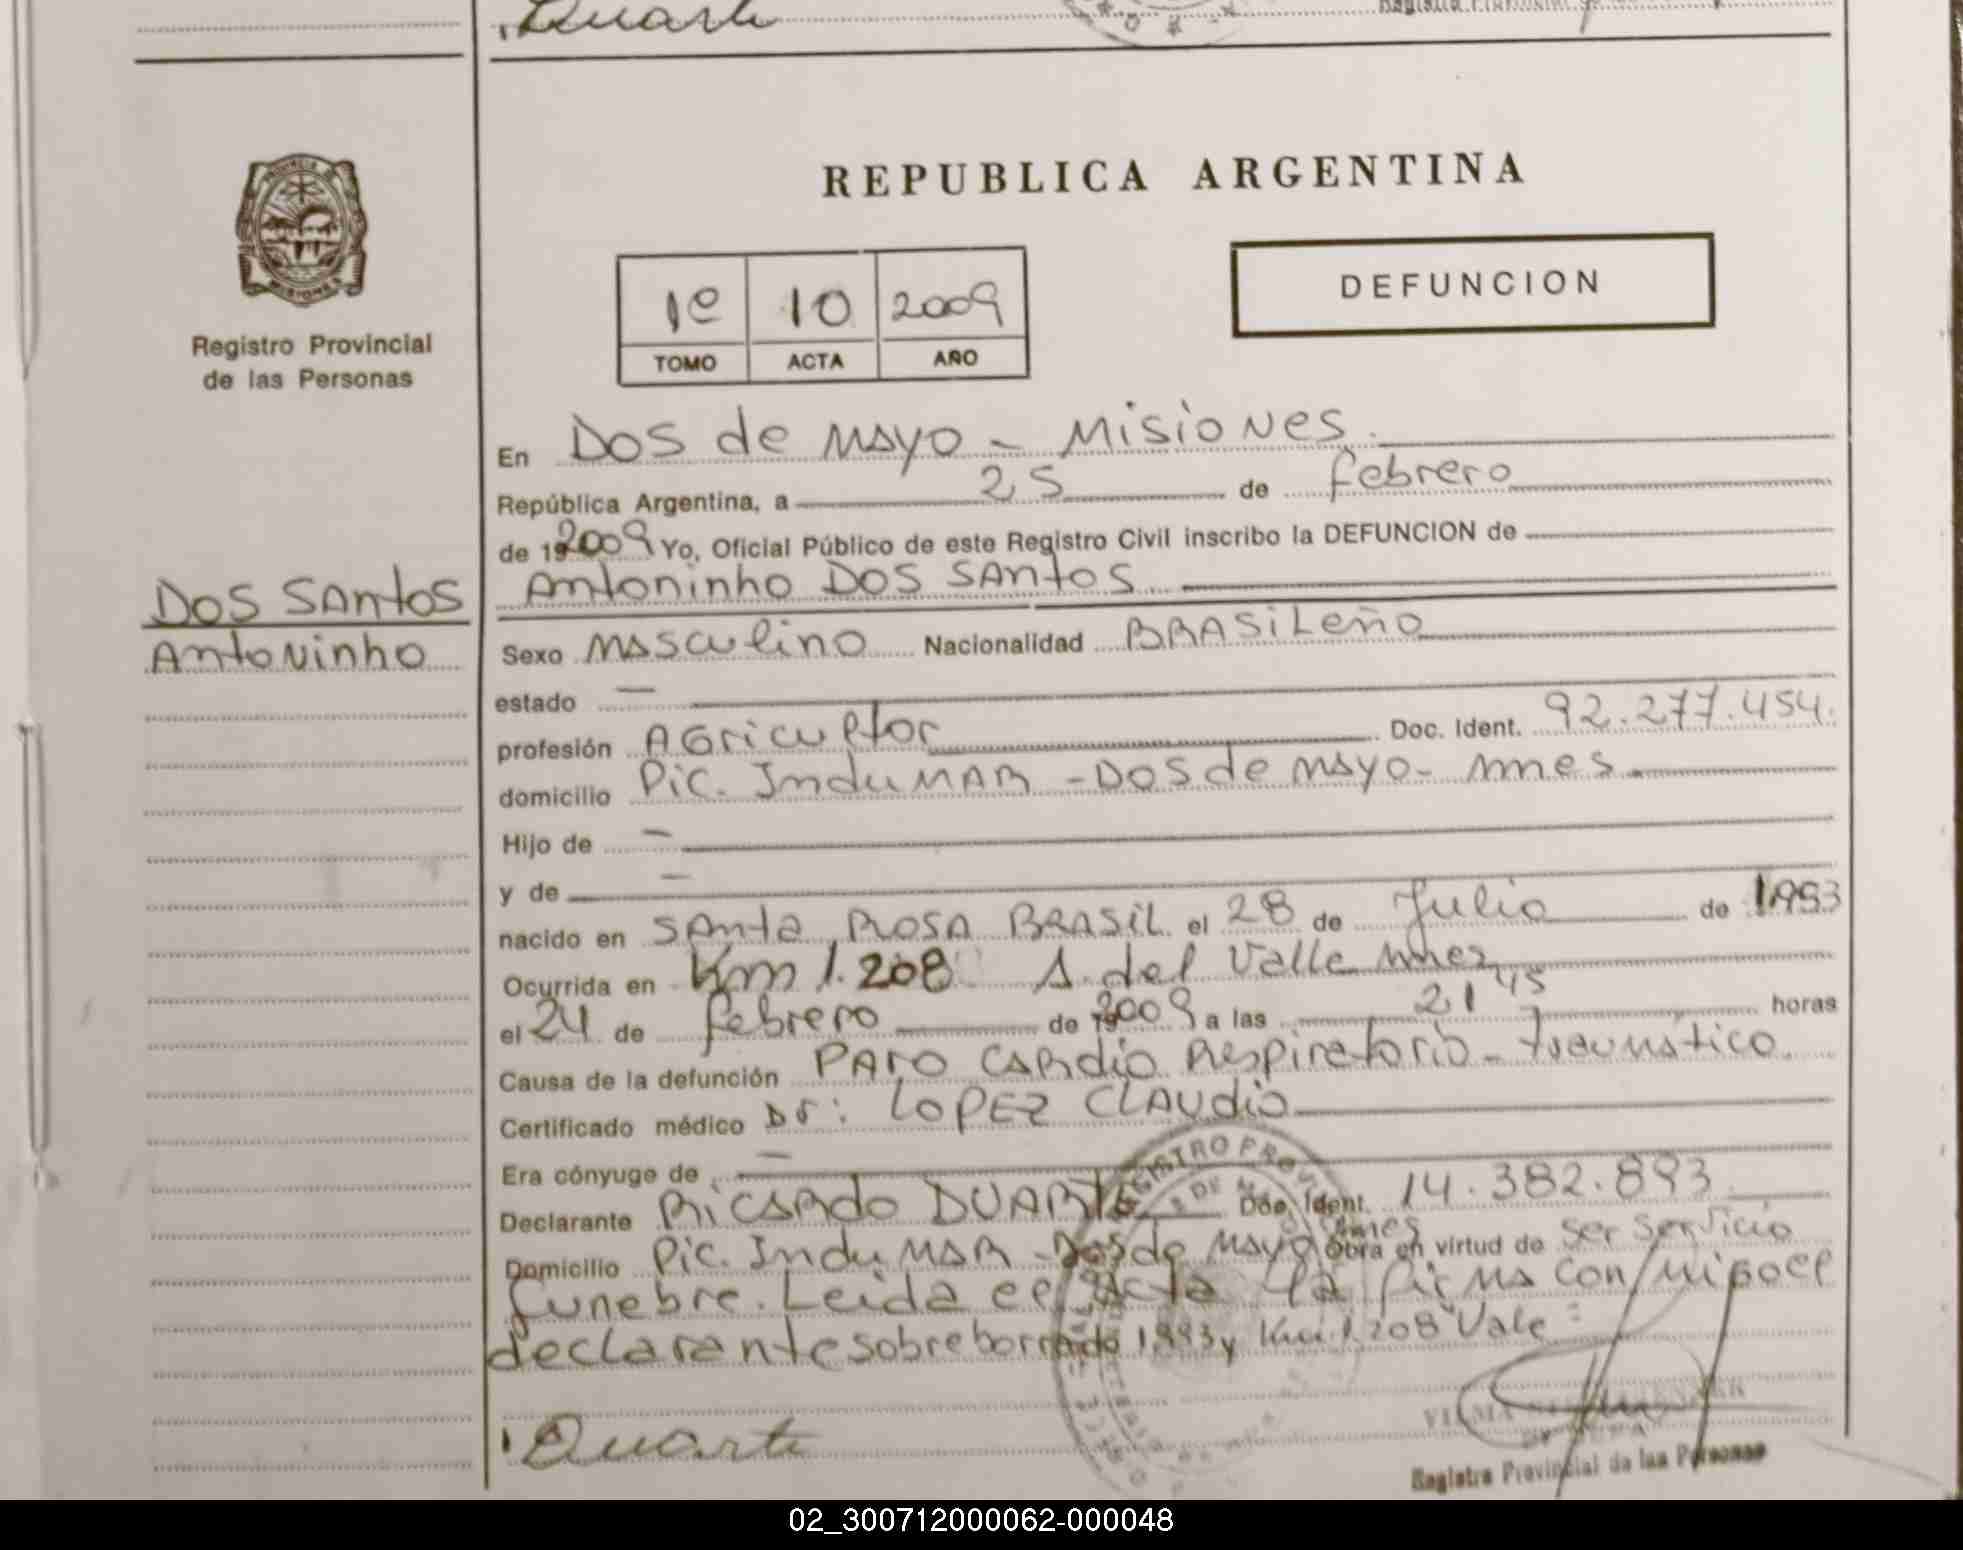 Duarte
REPUBLICA ARGENTINA
MISIONES
Registro Provincial
de las Personas
1º 10 2009
TOMO ACTA AÑO
DEFUNCION
En Dos de Mayo - Misiones.
República Argentina, a 25 de febrero
de 19 2009 Yo, Oficial Público de este Registro Civil inscribo la DEFUNCION de
Antoninho DOS SANTOS
DOS SANTOS
Antoninho
Sexo Masculino Nacionalidad BRASILeño
estado —
profesión Agricultor Doc. Ident. 92.277.454.
domicilio Pic. Indumar - Dos de Mayo - Mnes.
Hijo de —
y de —
nacido en Santa Rosa Brasil el 28 de Julio de 1993
Ocurrida en Km 1.208 A. del Valle Mnes
el 24 de febrero de 19 2009 a las 21 45 horas
Causa de la defunción Paro Cardio Respiratorio - traumático
Certificado médico Dr: LOPEZ CLAUdio
Era cónyuge de —
Declarante Ricardo DUARTE Doc. Ident. 14.382.893
Domicilio Pic. Indumar - Dos de Mayo Mnes Obra en virtud de ser servicio
funebre. Leida el acta la firma conmigo el
declarante sobreborrado 1993 y Km 1.208 "Vale"
Duarte
VILMA
Registro Provincial de las Personas
02_300712000062-000048